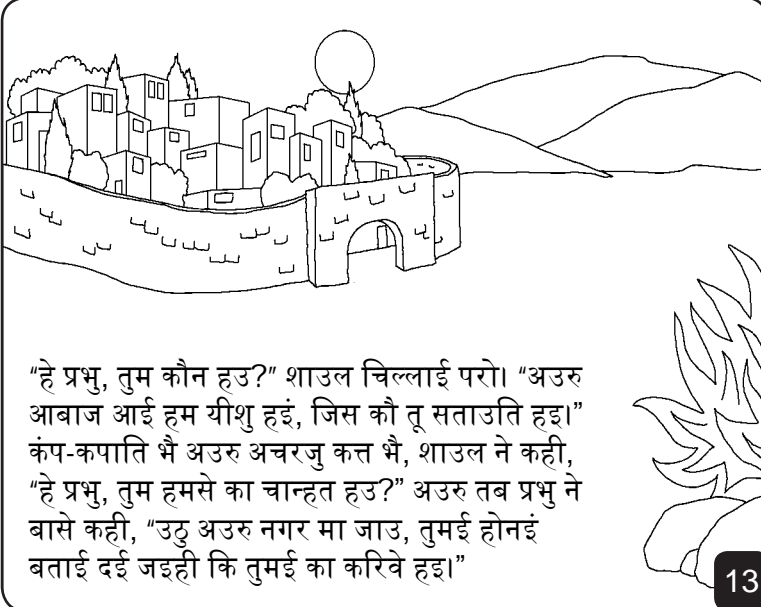 “हे प्रभु, तुम कौन हउ?” शाउल चिल्लाई परो। “अउरु
आबाज आई हम यीशु हइं, जिस कौ तू सताउति हइ।”
कंप-कपाति भै अउरु अचरजु कत्त भै, शाउल ने कही,
“हे प्रभु, तुम हमसे का चान्हत हउ?” अउरु तब प्रभु ने
बासे कही, “उठु अउरु नगर मा जाउ, तुमई होनइं
बताई दई जइही कि तुमई का करिवे हइ।”
13